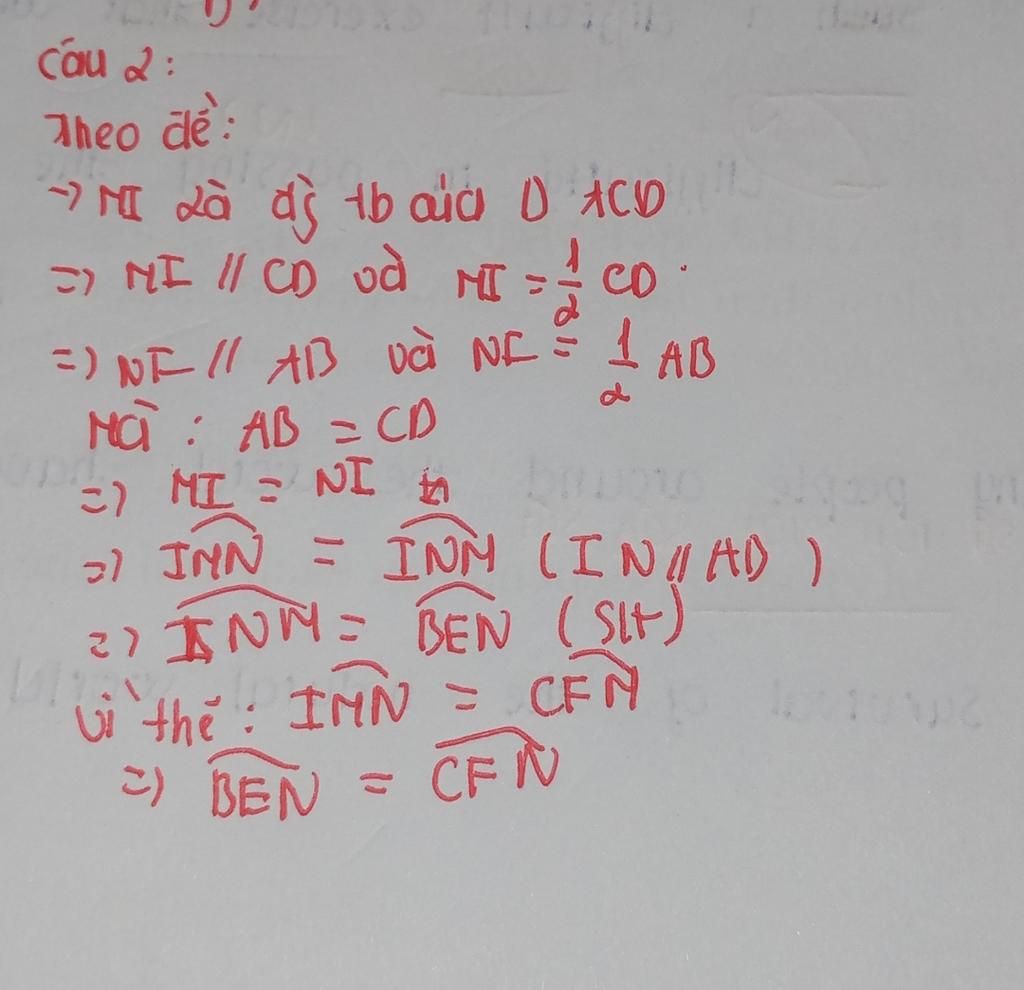 Câu 2:
Theo đề:
→ MI là đg tb của D ACD
=> MI // CD và MI = 1/2 CD
=> NI // AB và NI = 1/2 AB
Mà : AB = CD
=> MI = NI
=> IMN = INM ( IN // AD )
=> INM = BEN ( Slt )
Vì thế : IMN = CFN
=> BEN = CFN